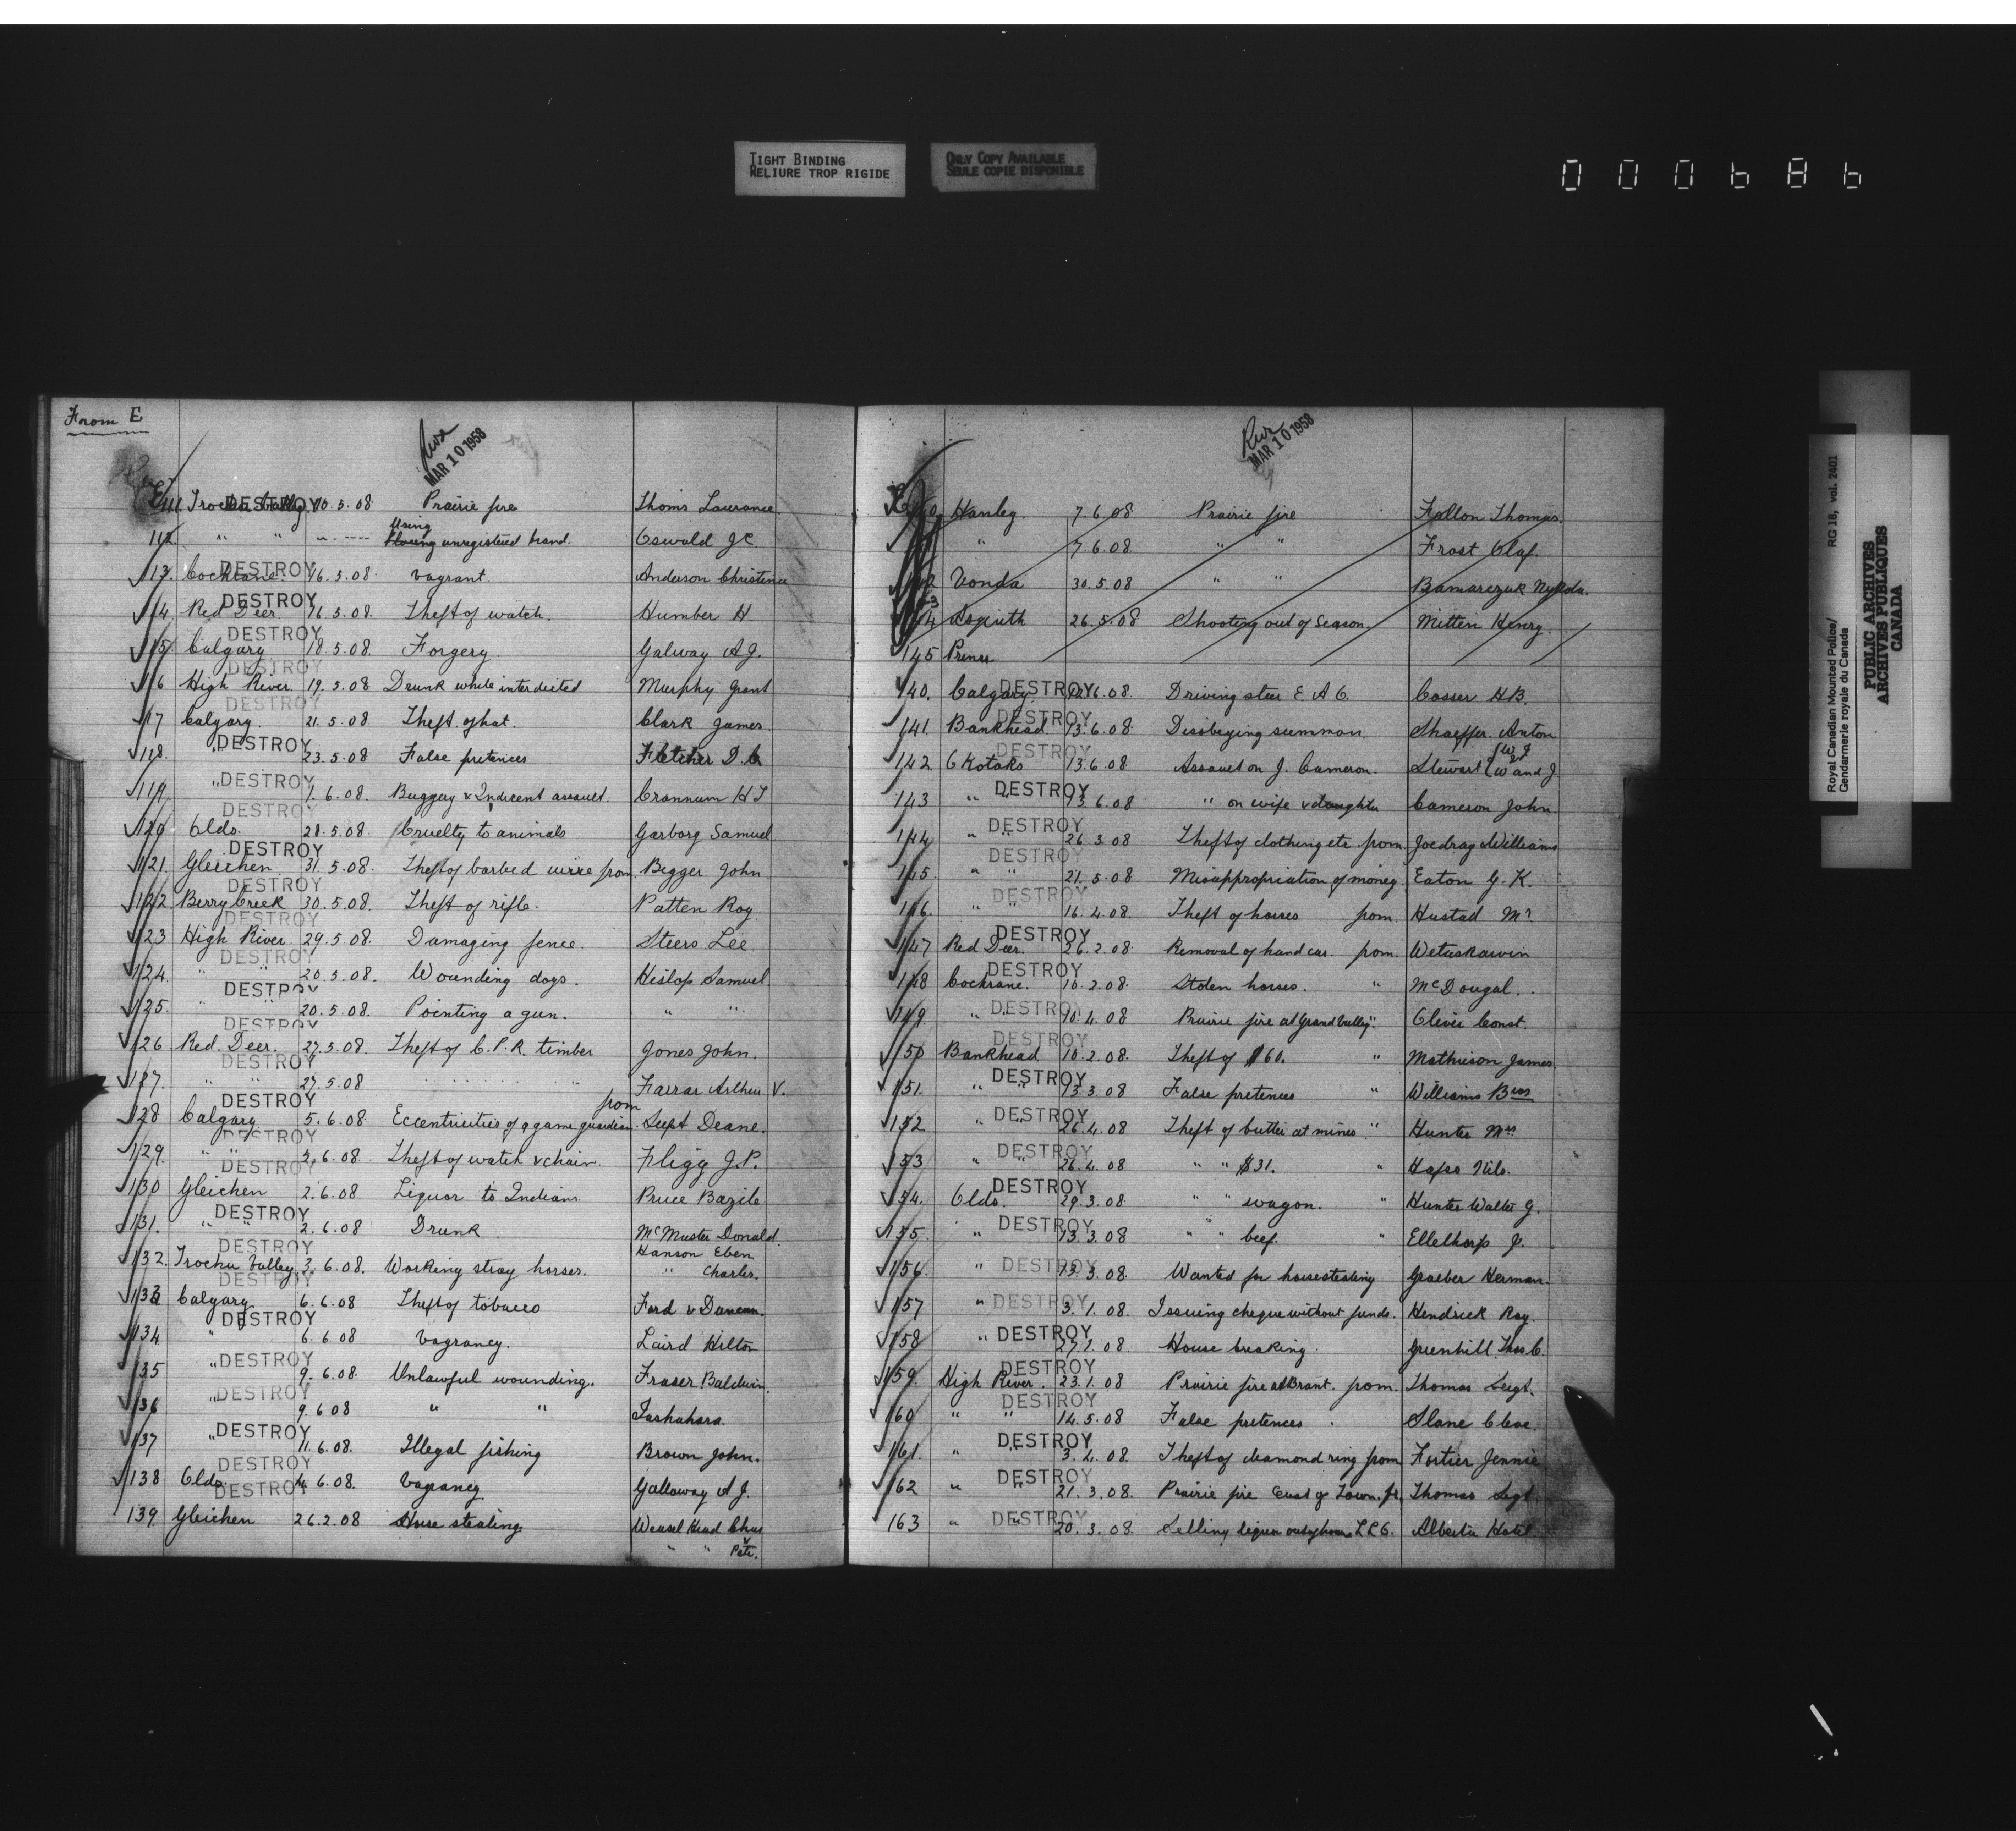 TIGHT BINDING
RELIURE TROP RIGIDE
ONLY COPY AVAILABLE
SEULE COPIE DISPONIBLE
000686
From E
MAR 10 1958
E 111 Trochu Valley DESTROY 10.5.08 Prairie fire Thoms Laurance
112. " " Using unregistered brand. Oswald J C.
DESTROY
113. Cochrane. 16.5.08. Vagrant. Anderson Christena
DESTROY
114 Red Deer 16.5.08. Theft of watch. Humber H
DESTROY
115. Calgary 18.5.08. Forgery. Galway A J.
DESTROY
116 High River 19.5.08 Drunk while interdicted Murphy Grant
DESTROY
117 Calgary. 21.5.08. Theft of hat. Clark James.
118. " DESTROY 23.5.08 False pretences Fletcher D.
119. " DESTROY 1.6.08. Buggery & Indecent assault. Crannum H T
DESTROY
120 Olds. 28.5.08. Cruelty to animals Garborg Samuel
DESTROY
121. Gleichen 31.5.08. Theft of barbed wire from Bigger John
DESTROY
122 Berry Creek 30.5.08. Theft of rifle. Patten Roy.
DESTROY
123 High River. 29.5.08. Damaging fence. Steers Lee
DESTROY
124. " " 20.5.08. Wounding dogs. Heslop Samuel
DESTROY
125. " " 20.5.08. Pointing a gun. " "
DESTROY
126 Red Deer. 27.5.08. Theft of C.P.R. timber Jones John.
DESTROY
127. " " 27.5.08 " " Farrar Arthur V.
DESTROY
128 Calgary 5.6.08. Eccentricities of a game guardian from Supt Deane.
DESTROY
129. " " 2.6.08. Theft of watch & chain. Fligg J.P.
DESTROY
130 Gleichen 2.6.08 Liquor to Indians Pruce Bazile
DESTROY
131. " " 2.6.08. Drunk McMuster Donald.
DESTROY
132. Trochu Valley. 3.6.08. Working stray horses. Hanson Eben
" Charles.
DESTROY
133 Calgary 6.6.08 Theft of tobacco Ford & Duncan.
DESTROY
134 " 6.6.08 Vagrancy. Laird Hilton
135 " DESTROY 9.6.08. Unlawful wounding. Fraser Baldwin.
136 " DESTROY 9.6.08 " " Tashahara.
137 " DESTROY 11.6.08. Illegal fishing Brown John.
DESTROY
138 Olds. DESTROY 14.6.08. Vagrancy Galloway A J.
139. Gleichen 26.2.08 Horse stealing Weasel Head Chas
" " Pete.
MAR 10 1958
Hanley 7.6.08 Prairie fire Fallon Thomas.
" 7.6.08. " " Frost Olaf.
Vonda 30.5.08 " " Bamarczuk Nykola.
Asquith 26.5.08 Shooting out of Season. Mitten Henry.
145 Prince
140. Calgary DESTROY 12.6.08. Driving steer E A C. Cosser H B.
DESTROY
141. Bankhead. 13.6.08 Dissobeying summon. Shaeffer Anton
DESTROY
142 Okotoks 13.6.08 Assault on J. Cameron. Stewart W and J
143 " " DESTROY 13.6.08 " on wife & daughter Cameron John.
144 " " DESTROY 26.3.08 Theft of clothing etc from. Joedrag Williams
DESTROY
145. " " 21.5.08 Misappropriation of money. Eaton G. K.
DESTROY
146. " " 16.4.08. Theft of horses from. Hustad Mr
DESTROY
147 Red Deer. 26.2.08. Removal of hand car. from. Wetaskawin
DESTROY
148 Cochrane. 16.2.08. Stolen horses. " McDougal.
149. " " DESTROY 10.4.08 Prairie fire at Grand Valley. " Olivir Const.
DESTROY
150 Bankhead. 10.2.08. Theft of $60. " Mathieson James.
151. " " DESTROY 13.3.08 False pretences " Williams Bros
152. " " DESTROY 26.4.08 Theft of butter at mines. " Hunter Mrs
153 " " DESTROY 26.4.08 " " $31. " Hafso Nils.
154. Olds. DESTROY 29.3.08 " " wagon. " Hunter Walter G.
155. " DESTROY 13.3.08 " " beef. " Ellelthorp J.
156. " DESTROY 13.3.08. Wanted for horsestealing Graeber Herman.
157 " DESTROY 3.1.08. Issuing cheque without funds. Hendrick Roy.
158 " DESTROY 27.1.08 House breaking. Greenhill Thos C.
DESTROY
159. High River. 23.1.08 Prairie fire at Brant. from. Thomas Sergt.
DESTROY
160 " " 14.5.08 False pretences. Slane Cleve.
161. " " DESTROY 3.4.08. Theft of diamond ring from Fortier Jennie
162 " " DESTROY 21.3.08. Prairie fire East of Town. fr. Thomas Sergt.
163 " " DESTROY 20.3.08. Selling liquor out of hours L L O. Alberta Hotel.
Royal Canadian Mounted Police/
Gendarmerie royale du Canada
RG 18, vol. 2401
PUBLIC ARCHIVES
ARCHIVES PUBLIQUES
CANADA